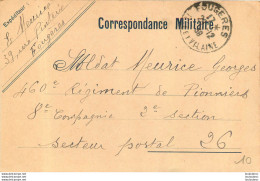 Expéditeur
E. Meurice
39, rue Pinterie
Fougères
Correspondance Militaire
FOUGERES
ILLE ET VILAINE
Soldat Meurice Georges
460e Régiment de Pionniers
8e Compagnie 2e section
Secteur postal 96
10